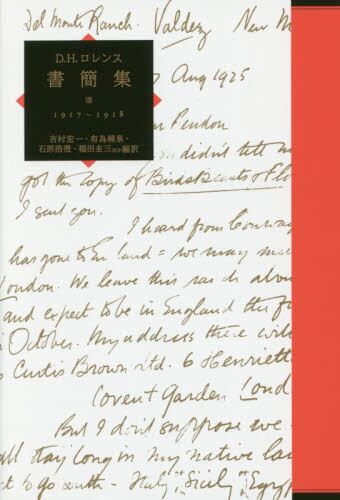 Del Monte Ranch. Valdez New M
D.H.ロレンス
書簡集
Ⅷ
1917～1918
吉村宏一・有為楠泉・
石原浩澄・福田圭三ほか編訳
Aug 1925
didn't tell
got the copy of Birds Beasts & Flo
I sent you.
I heard from
has gone to England = we may
London. We leave this ranch
and expect to be in England the
October. My address there will
Curtis Brown Ltd. 6 Henriett
Covent Garden Lond
But I don't suppose we
all stay long in my native la
to go south — Italy, Sicily or Egyp